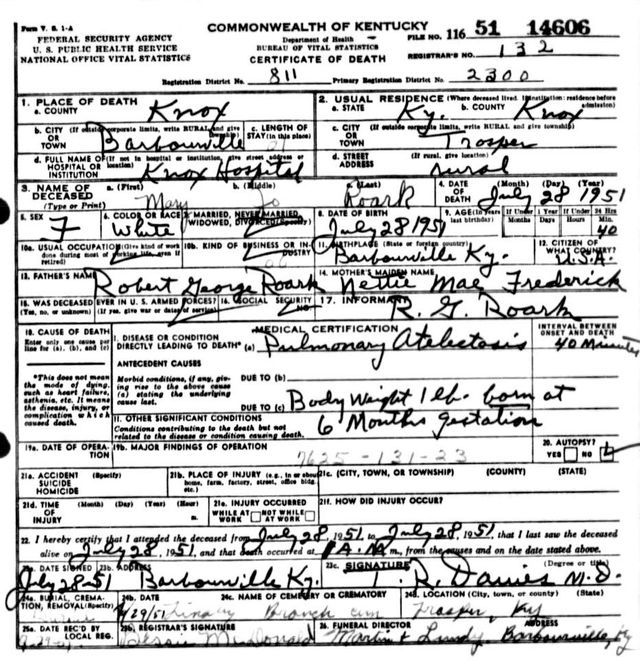 Form V. S. 1-A
FEDERAL SECURITY AGENCY
U. S. PUBLIC HEALTH SERVICE
NATIONAL OFFICE VITAL STATISTICS
COMMONWEALTH OF KENTUCKY
Department of Health
BUREAU OF VITAL STATISTICS
CERTIFICATE OF DEATH
FILE NO. 116 51 14606
REGISTRAR'S NO. 132
Registration District No. 811 Primary Registration District No. 2300
1. PLACE OF DEATH
a. COUNTY Knox
2. USUAL RESIDENCE (Where deceased lived. If institution: residence before admission)
a. STATE Ky. b. COUNTY Knox
b. CITY (If outside corporate limits, write RURAL and give township) OR TOWN Barbourville
c. LENGTH OF STAY (in this place)
c. CITY (If outside corporate limits, write RURAL and give township) OR TOWN Trosper
d. FULL NAME OF (If not in hospital or institution, give street address or location) HOSPITAL OR INSTITUTION Knox Hospital
d. STREET ADDRESS (If rural, give location) rural
3. NAME OF DECEASED (Type or Print) a. (First) Mary b. (Middle) Jo c. (Last) Roark
4. DATE OF DEATH (Month) (Day) (Year) July 28 1951
5. SEX F
6. COLOR OR RACE White
7. MARRIED, NEVER MARRIED, WIDOWED, DIVORCED (Specify)
8. DATE OF BIRTH July 28 1951
9. AGE (In years last birthday) If Under 1 Year Months Days If Under 24 Hrs Hours Min. 40
10a. USUAL OCCUPATION (Give kind of work done during most of working life, even if retired)
10b. KIND OF BUSINESS OR INDUSTRY
11. BIRTHPLACE (State or foreign country) Barbourville Ky.
12. CITIZEN OF WHAT COUNTRY? U.S.A.
13. FATHER'S NAME Robert George Roark
14. MOTHER'S MAIDEN NAME Nettie Mae Frederick
15. WAS DECEASED EVER IN U. S. ARMED FORCES? (Yes, no, or unknown) (If yes, give war or dates of service)
16. SOCIAL SECURITY NO.
17. INFORMANT R. G. Roark
18. CAUSE OF DEATH
Enter only one cause per line for (a), (b), and (c)
MEDICAL CERTIFICATION
I. DISEASE OR CONDITION DIRECTLY LEADING TO DEATH* (a) Pulmonary Atelectosis
INTERVAL BETWEEN ONSET AND DEATH
40 Minutes
*This does not mean the mode of dying, such as heart failure, asthenia, etc. It means the disease, injury, or complication which caused death.
ANTECEDENT CAUSES
Morbid conditions, if any, giving rise to the above cause (a) stating the underlying cause last.
DUE TO (b)
DUE TO (c) Body Weight 1 lb. born at
6 Months gestation
II. OTHER SIGNIFICANT CONDITIONS
Conditions contributing to the death but not related to the disease or condition causing death.
19a. DATE OF OPERATION
19b. MAJOR FINDINGS OF OPERATION
7625-131-23
20. AUTOPSY? YES NO
21a. ACCIDENT SUICIDE HOMICIDE (Specify)
21b. PLACE OF INJURY (e.g., in or about home, farm, factory, street, office bldg., etc.)
21c. (CITY, TOWN, OR TOWNSHIP) (COUNTY) (STATE)
21d. TIME OF INJURY (Month) (Day) (Year) (Hour) m.
21e. INJURY OCCURRED WHILE AT WORK NOT WHILE AT WORK
21f. HOW DID INJURY OCCUR?
22. I hereby certify that I attended the deceased from July 28, 1951, to July 28, 1951, that I last saw the deceased
alive on July 28, 1951, and that death occurred at 1 A. M. m., from the causes and on the date stated above.
23a. DATE SIGNED July 28-51
23b. ADDRESS Barbourville Ky.
23c. SIGNATURE (Degree or title) T. R. Davies M.D.
24a. BURIAL, CREMATION, REMOVAL (Specify)
24b. DATE 7/29/51
24c. NAME OF CEMETERY OR CREMATORY Branch cem
24d. LOCATION (City, town, or county) (State) Trosper, Ky
25a. DATE REC'D BY LOCAL REG.
25b. REGISTRAR'S SIGNATURE Bessie McDonald
26. FUNERAL DIRECTOR ADDRESS Martin & Lundy Barbourville, Ky